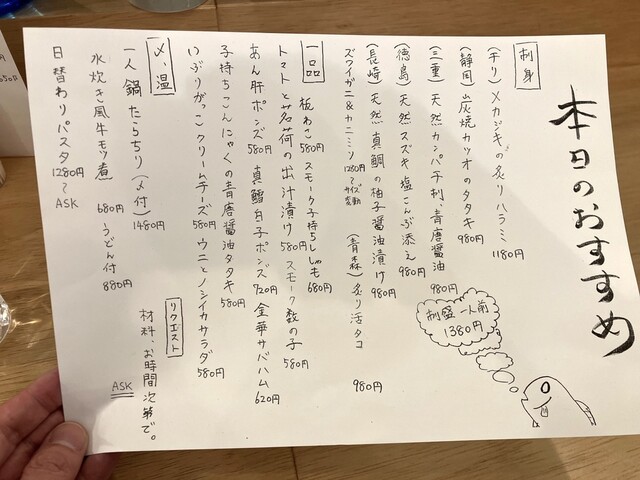 本日のおすすめ
刺身
(チリ)メカジキの炙りハラミ 1180円
(静岡)炭焼カツオのタタキ 980円
(三重)天然カンパチ刺、青唐醤油 980円
(徳島)天然スズキ塩こんぶ添え 980円
(長崎)天然真鯛の柚子醤油漬け 980円
ズワイガニ&カニミソ 1280円〜サイズ変動 (青森)炙り活タコ 980円
刺盛一人前 1380円
一品
板わさ 580円 スモーク子持ちししゃも 680円
トマトと茗荷の出汁漬け 580円 スモーク数の子 580円
あん肝ポンズ 580円 真鱈白子ポンズ 720円 金華サバハム 620円
子持ちこんにゃくの青唐醤油タタキ 580円
いぶりがっこクリームチーズ 580円 ウニとノシイカサラダ 580円
〆、温
一人鍋たらちり(〆付) 1480円
水炊き風牛モツ煮 680円 うどん付 880円
日替わりパスタ 1280円〜ASK
リクエスト
材料、お時間次第で。
ASK